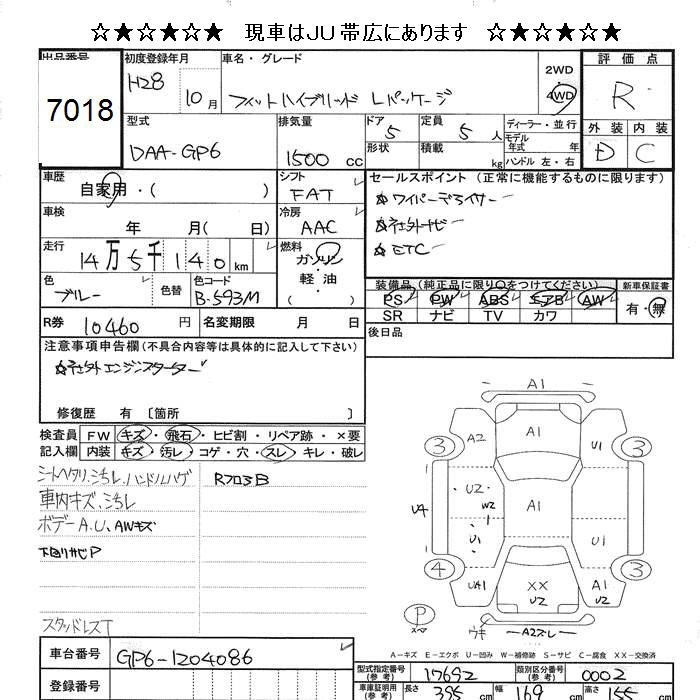 ☆★☆★☆★☆ 現車はJU帯広にあります ☆★☆★☆★☆
出品番号
7018
初度登録年月
H28 10月
車名・グレード
フィットハイブリッド Lパッケージ
2WD
4WD
評価点
R
外装 内装
D C
型式
DAA-GP6
排気量
1500 cc
ドア 5
形状
定員 5 人
積載 kg
ディーラー・並行
モデル年式 年
ハンドル 左・右
車歴
自家用・( )
シフト
FAT
車検
年 月( 日)
冷房
AAC
走行
14万5千140km
燃料
ガソリン
・
軽油
色
ブルー
色替
色コード
B-593M
( )
セールスポイント(正常に機能するものに限ります)
☆ワイパーデアイサー
☆社外ナビ
☆ETC
装備品(純正品に限り○をつけてください)
PS PW ABS エアB AW
SR ナビ TV カワ
新車保証書
有・無
R券 10460 円
名変期限 月 日
後日品
注意事項申告欄(不具合内容等は具体的に記入して下さい)
☆社外エンジンスターター
修復歴 有 〔箇所 〕
検査員記入欄
FW キズ・飛石・ヒビ割・リペア跡・×要
内装 キズ・汚レ・コゲ・穴・スレ・キレ・破レ
シートヘタリ、ヨゴレ、ハンドルハゲ
車内キズ、ヨゴレ
ボデーA.U、AWキズ
下回りサビP
スタッドレスT
RフロアB
A1
A2 A1 U1
3 3
U4 U2 W2 A1
U1 U1
4 3
UA1 XX U2 A1 U2
P
スペア
ウキ A2スレ
A-キズ E-エクボ U-凹み W-補修跡 S-サビ C-腐食 XX-交換済
車台番号
GP6-1204086
登録番号
型式指定番号(参考) 17692
類別区分番号(参考) 0002
車庫証明用(参考) 長さ 395 cm 幅 169 cm 高さ 155 cm